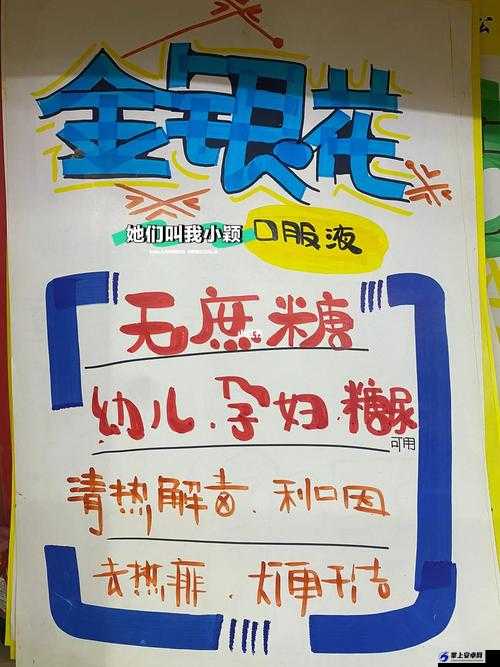 金银花
她们叫我小颖 口服液
无庶糖
幼儿.孕妇.糖尿
可用
清热解毒.利咽
去热痱.大便干结
掌上安卓网